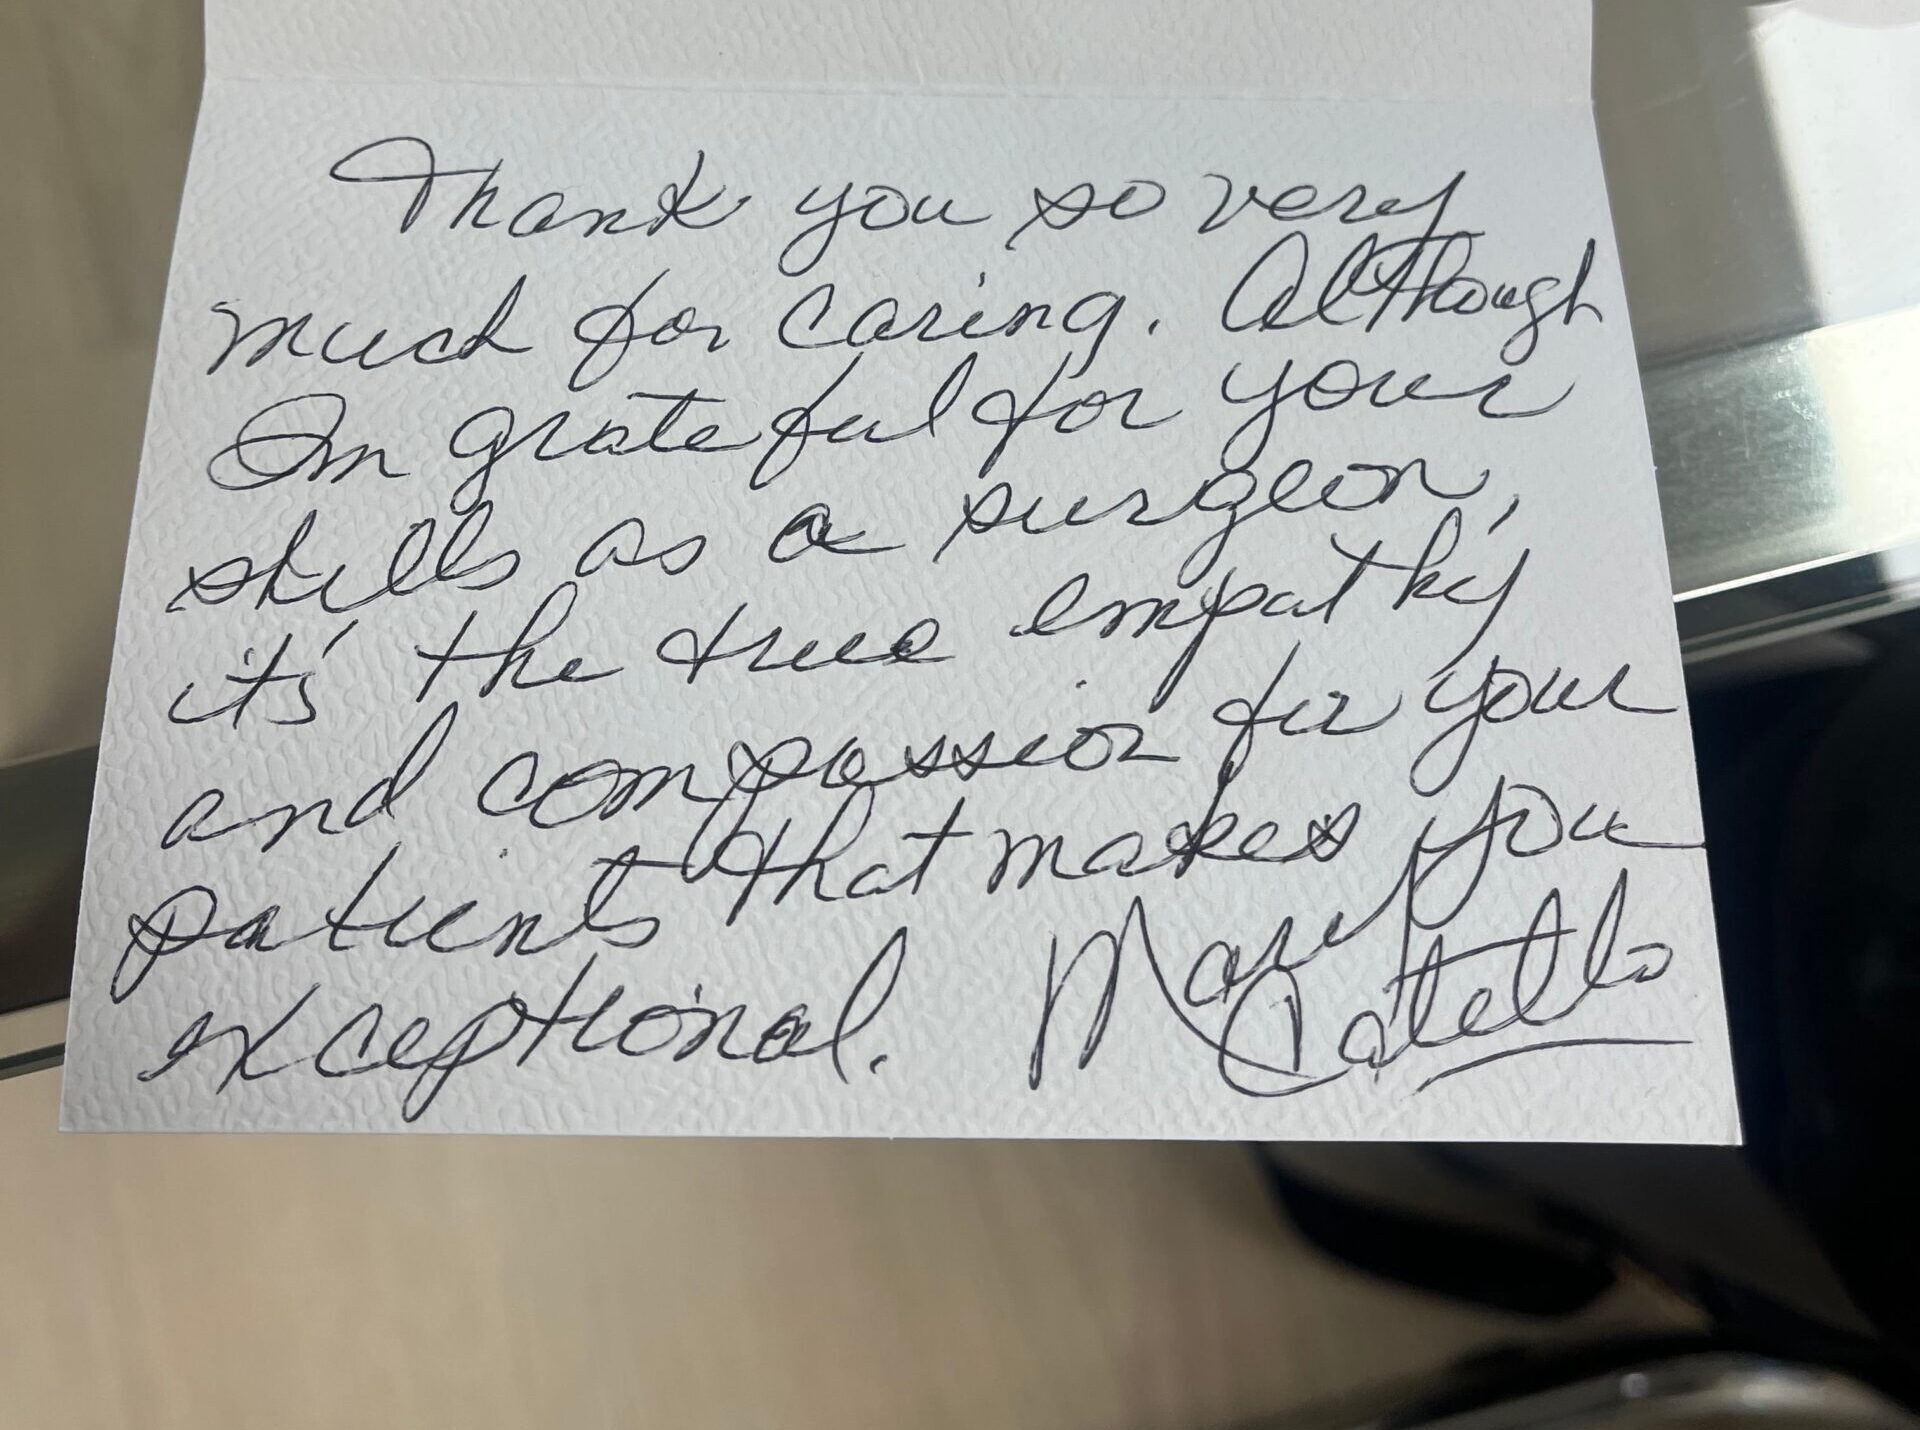 Thank you so very
much for caring. Although
Im grateful for your
skills as a surgeon,
it's the true empathy
and compassion for your
patients that makes you
exceptional. Mary
Catello